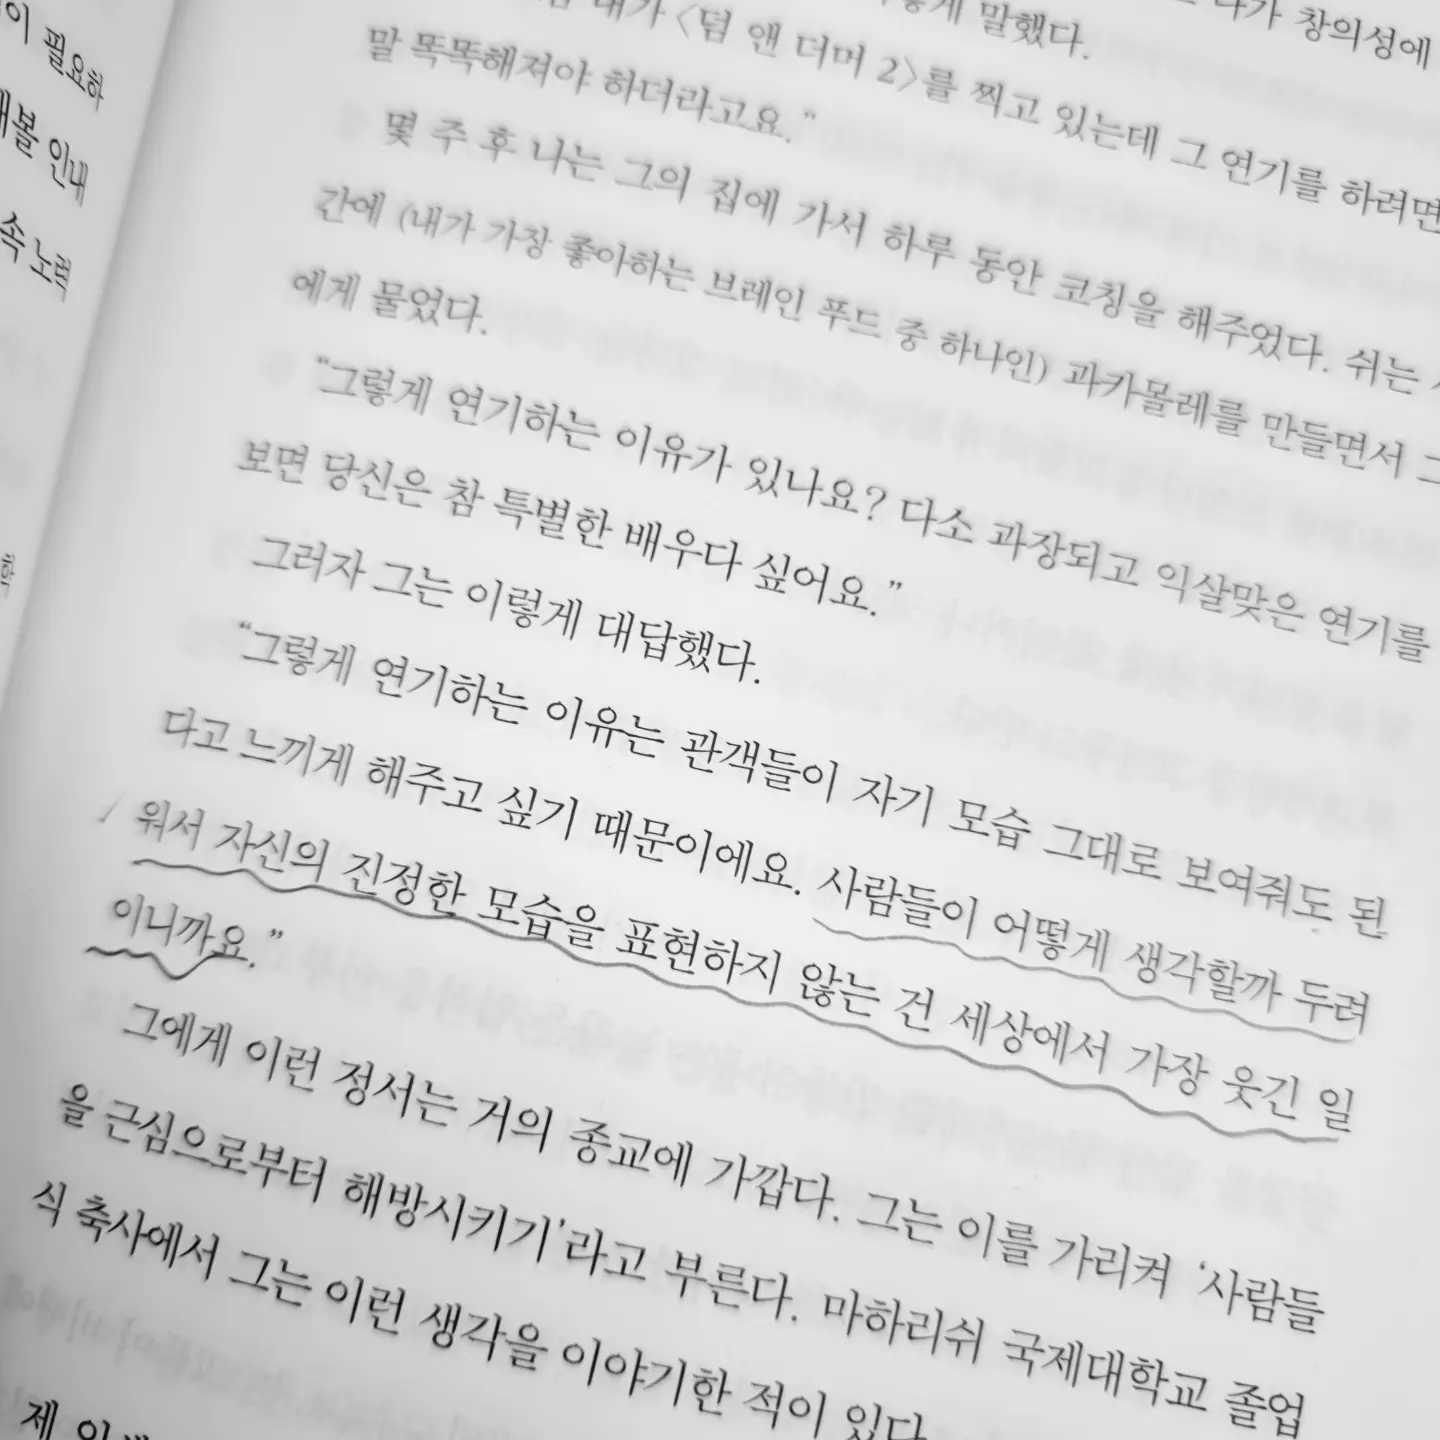 필요하
인내
속 노력
나가 창의성에
말했다.
내가 〈덤 앤 더머 2〉를 찍고 있는데 그 연기를 하려면
말 똑똑해져야 하더라고요.”
몇 주 후 나는 그의 집에 가서 하루 동안 코칭을 해주었다. 쉬는
간에 (내가 가장 좋아하는 브레인 푸드 중 하나인) 과카몰레를 만들면서 그
에게 물었다.
“그렇게 연기하는 이유가 있나요? 다소 과장되고 익살맞은 연기를
보면 당신은 참 특별한 배우다 싶어요.”
그러자 그는 이렇게 대답했다.
“그렇게 연기하는 이유는 관객들이 자기 모습 그대로 보여줘도 된
다고 느끼게 해주고 싶기 때문이에요. 사람들이 어떻게 생각할까 두려
워서 자신의 진정한 모습을 표현하지 않는 건 세상에서 가장 웃긴 일
이니까요.”
그에게 이런 정서는 거의 종교에 가깝다. 그는 이를 가리켜 ‘사람들
을 근심으로부터 해방시키기’라고 부른다. 마하리쉬 국제대학교 졸업
식 축사에서 그는 이런 생각을 이야기한 적이 있다
제